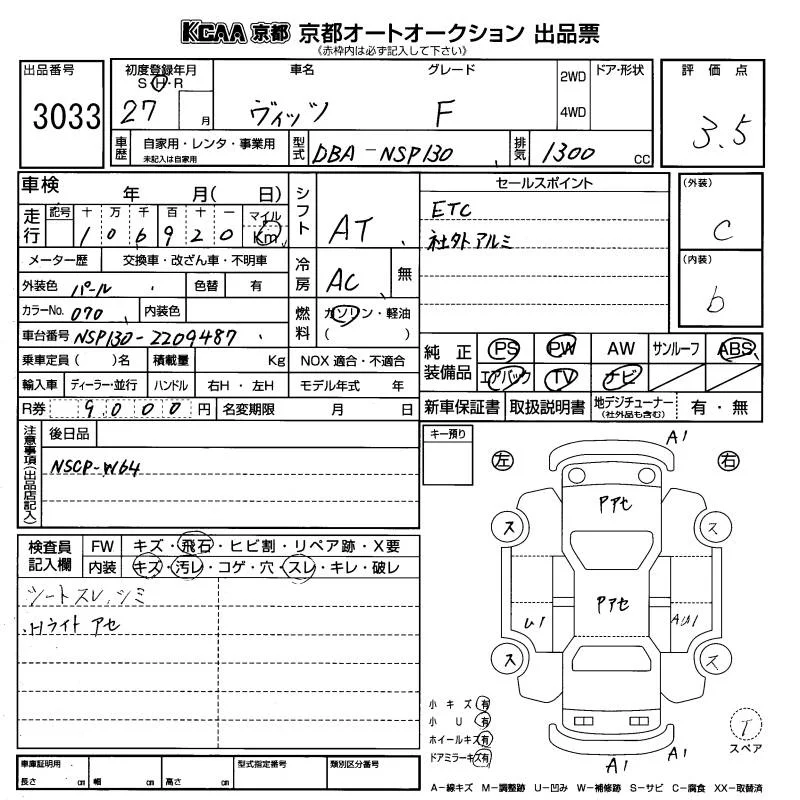 KCAA 京都 京都オートオークション 出品票
《赤枠内は必ず記入して下さい》
出品番号 3033
初度登録年月 S・H・R 27 月
車名 ヴィッツ
グレード F
2WD 4WD
ドア・形状
評価点 3.5
車歴 自家用・レンタ・事業用 未記入は自家用
型式 DBA-NSP130
排気 1300 CC
車検 年 月( 日)
シフト AT
セールスポイント
ETC
社外アルミ
(外装) C
(内装) b
走行 記号 十 万 千 百 十 一 マイル Km
1 0 6 9 2 0
メーター歴 交換車・改ざん車・不明車
冷房 AC 無
外装色 パール 色替 有
カラーNo. 070 内装色
燃料 ガソリン・軽油 ( )
車台番号 NSP130-2209487
乗車定員( )名 積載量 Kg NOX 適合・不適合
輸入車 ディーラー・並行 ハンドル 右H・左H モデル年式 年
R券 9000 円 名変期限 月 日
純正装備品 PS PW AW サンルーフ ABS
エアバック TV ナビ
新車保証書 取扱説明書 地デジチューナー (社外品も含む) 有・無
注意事項(出品店記入)
後日品
NSCP-W64
キー預り
左 右
A1
Pアセ
ス ス
Pアセ
U1
AU1
ス ス
A1 A1
検査員記入欄
FW キズ・飛石・ヒビ割・リペア跡・X要
内装 キズ・汚レ・コゲ・穴・スレ・キレ・破レ
シートスレ、シミ
Hライト アセ
小キズ 有
小U 有
ホイールキズ 有
ドアミラーキズ 有
T
スペア
車庫証明用 長さ cm 幅 cm 高さ cm
型式指定番号
類別区分番号
A-線キズ M-調整跡 U-凹み W-補修跡 S-サビ C-腐食 XX-取替済